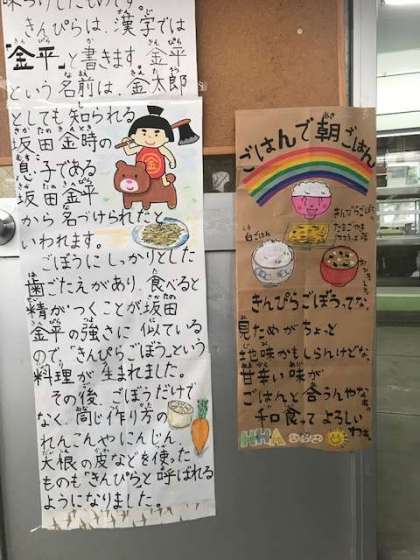 味つけしたものです。
きんぴらは、漢字では
「金平」と書きます。金平
という名前は、金太郎
としても知られる
坂田金時の
息子である
坂田金平
から名づけられたと
いわれます。
ごぼうにしっかりとした
歯ごたえがあり、食べると
精がつくことが坂田
金平の強さに似ている
ので、「きんぴらごぼう」という
料理が生まれました。
その後、ごぼうだけで
なく、同じ作り方の
れんこんやにんじん、
大根の皮などを使った
ものも「きんぴら」と呼ばれる
ようになりました。
ごはんで朝ごはん
きんぴらごぼう
たまごやき
白ごはん
きんぴらごぼうってな、
見ためがちょっと
地味かもしらんけどな、
甘辛い味が
ごはんと合うんやな。
和食ってよろしい
わぁ。